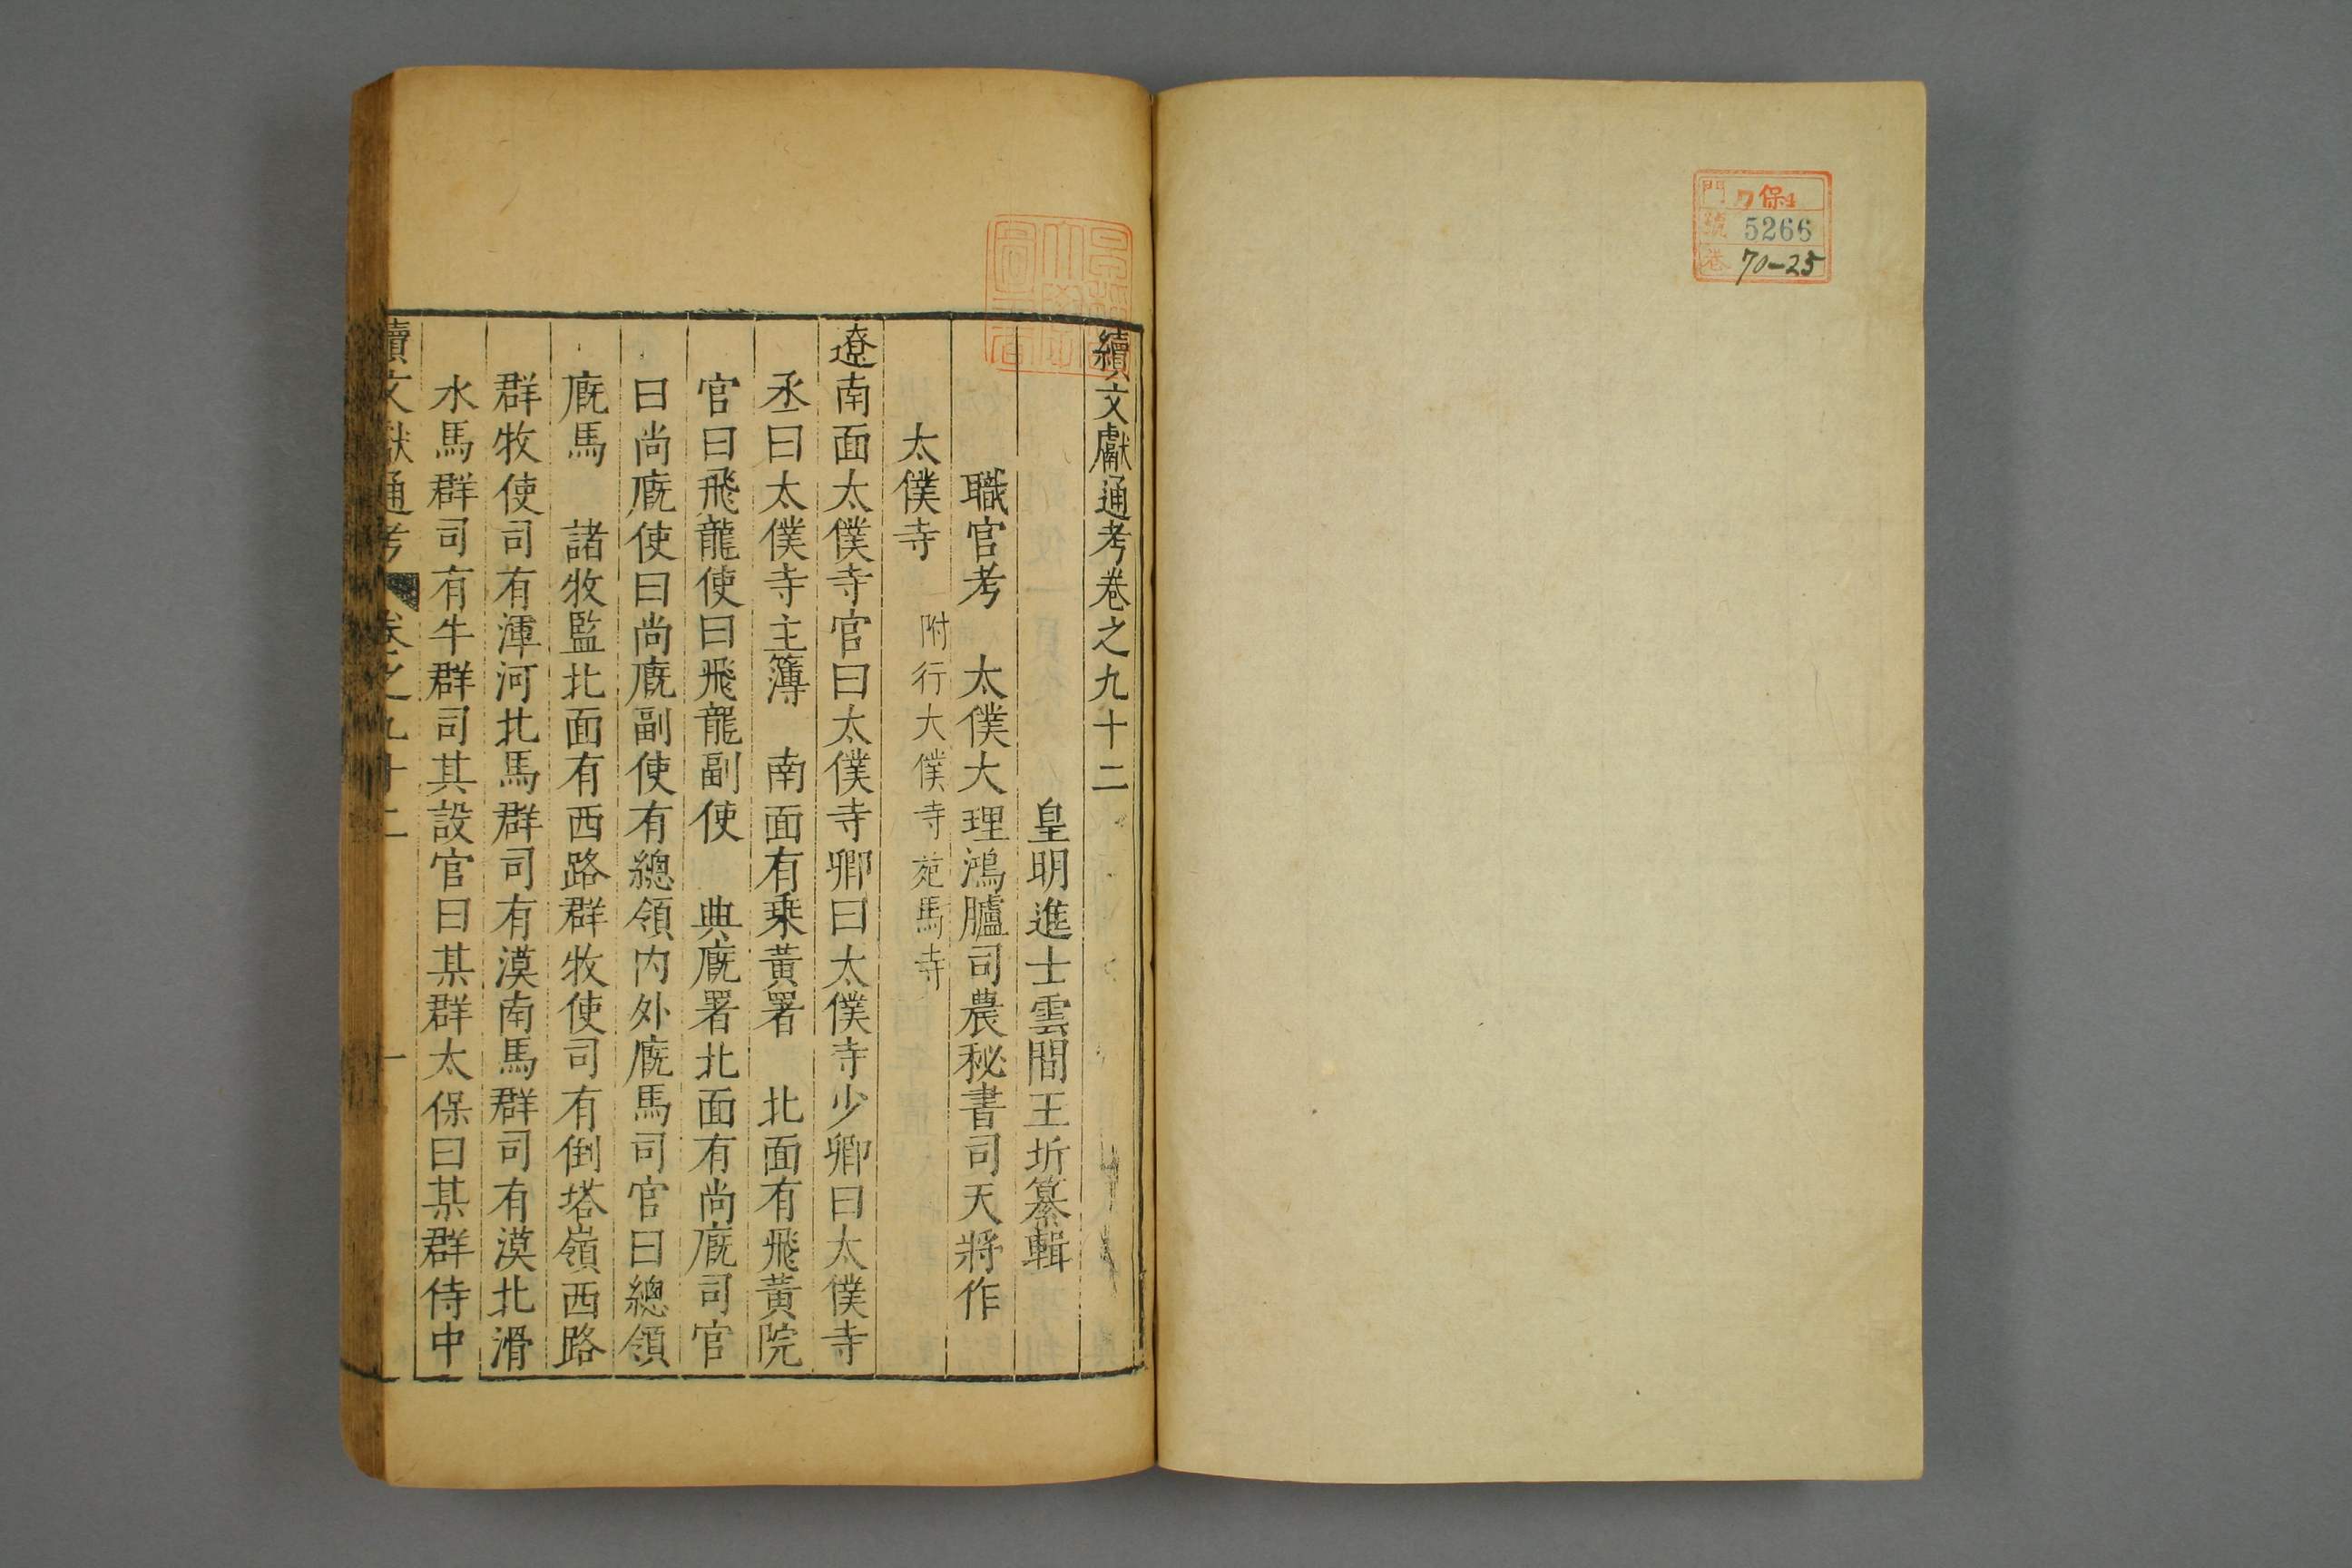 門 7保4
號 5266
卷 70-25
續文獻通考卷之九十二
皇明進士雲間王圻纂輯
職官考　太僕大理鴻臚司農秘書司天將作
太僕寺　附行太僕寺苑馬寺
遼南面太僕寺官曰太僕寺卿曰太僕寺少卿曰太僕寺
丞曰太僕寺主簿　南面有乗黃署　北面有飛黃院
官曰飛龍使曰飛龍副使　典廐署北面有尚廐司官
曰尚廐使曰尚廐副使有總領內外廐馬司官曰總領
廐馬　諸牧監北面有西路群牧使司有倒塔嶺西路
群牧使司有渾河北馬群司有漠南馬群司有漠北滑
水馬群司有牛群司其設官曰某群太保曰某群侍中
續文獻通考　卷之九十二　一